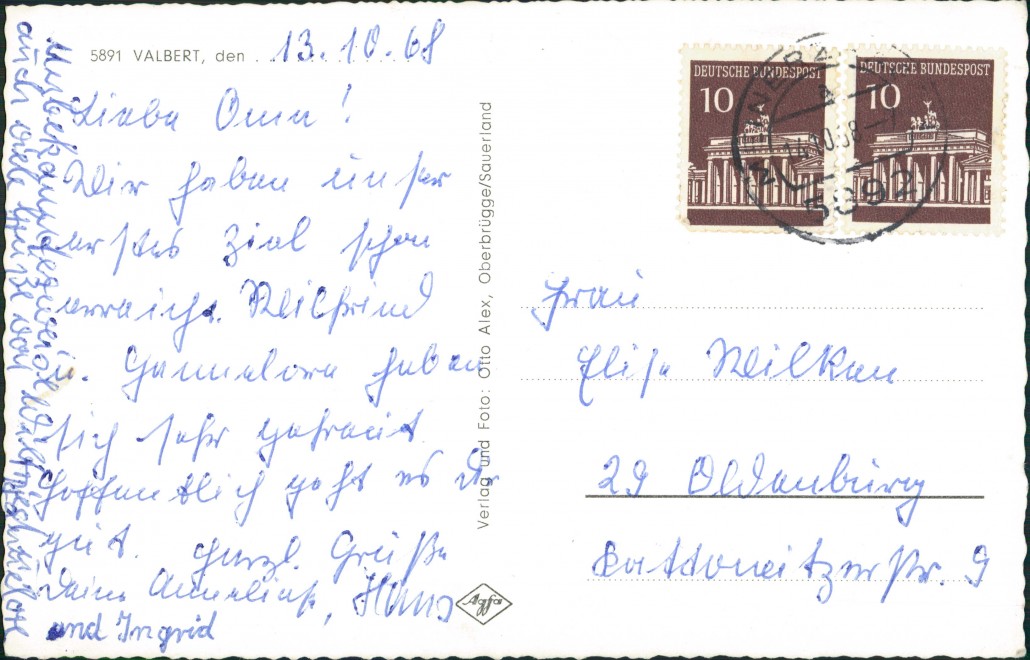 5891 VALBERT, den 13.10.68
Liebe Oma!
Wir haben unser
erstes Ziel schon
erreicht. Wilfried
u. Hannelore haben
sich sehr gefreut.
Hoffentlich geht es dir
gut. Herzl. Grüße
Deine Anneliese, Hans
und Ingrid
auch viele Grüße von
Verlag und Foto: Otto Alex, Oberbrügge/Sauerland
Agfa
DEUTSCHE BUNDESPOST
10
DEUTSCHE BUNDESPOST
10
14.10.68
5892
Frau
Elise Wilken
29 Oldenburg
Kattowitzerstr. 9